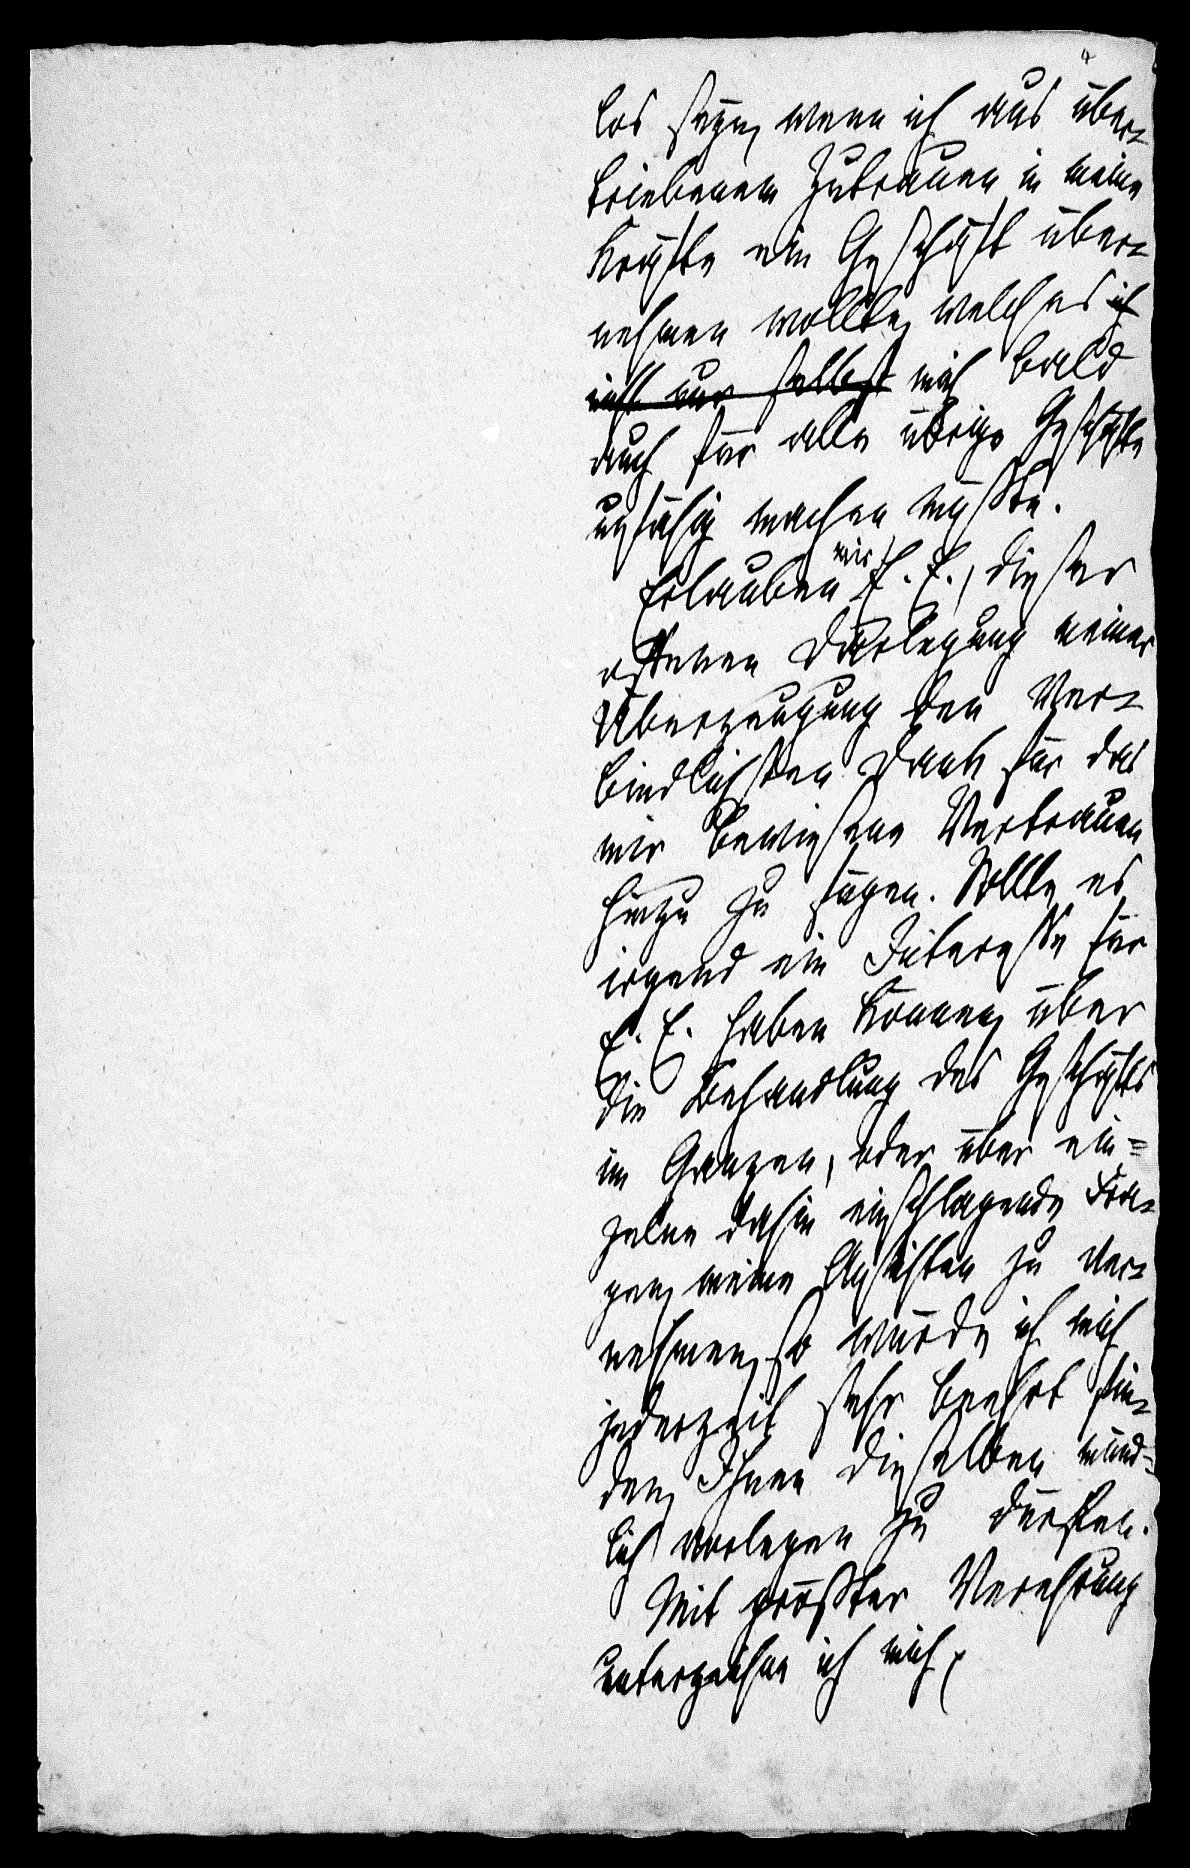 4
los seyn, wenn ich aus über-
triebenem Zutrauen in meine
Kräfte ein Geschäft über-
nehmen wollte, welches ich
nicht nur selbst mich bald
auch für alle übrige Geschäfte
unfähig machen müßte.
Erlauben mir E. E., dieser
offenen Darlegung meiner
Überzeugung den Ver-
bindlichsten Dank für das
mir bewiesene Vertrauen
hinzu zu fügen. Sollte es
irgend ein Interesse für
E. E. haben können, über
die Behandlung des Geschäfts
im Ganzen, oder über ein-
zelne dahin einschlagende Fra-
gen, meine Ansichten zu ver-
nehmen, so würde ich mich
jederzeit sehr beehrt fin-
den, Ihnen dieselben münd-
lich vorlegen zu dürfen.
Mit größter Verehrung
unterzeichne ich mich,